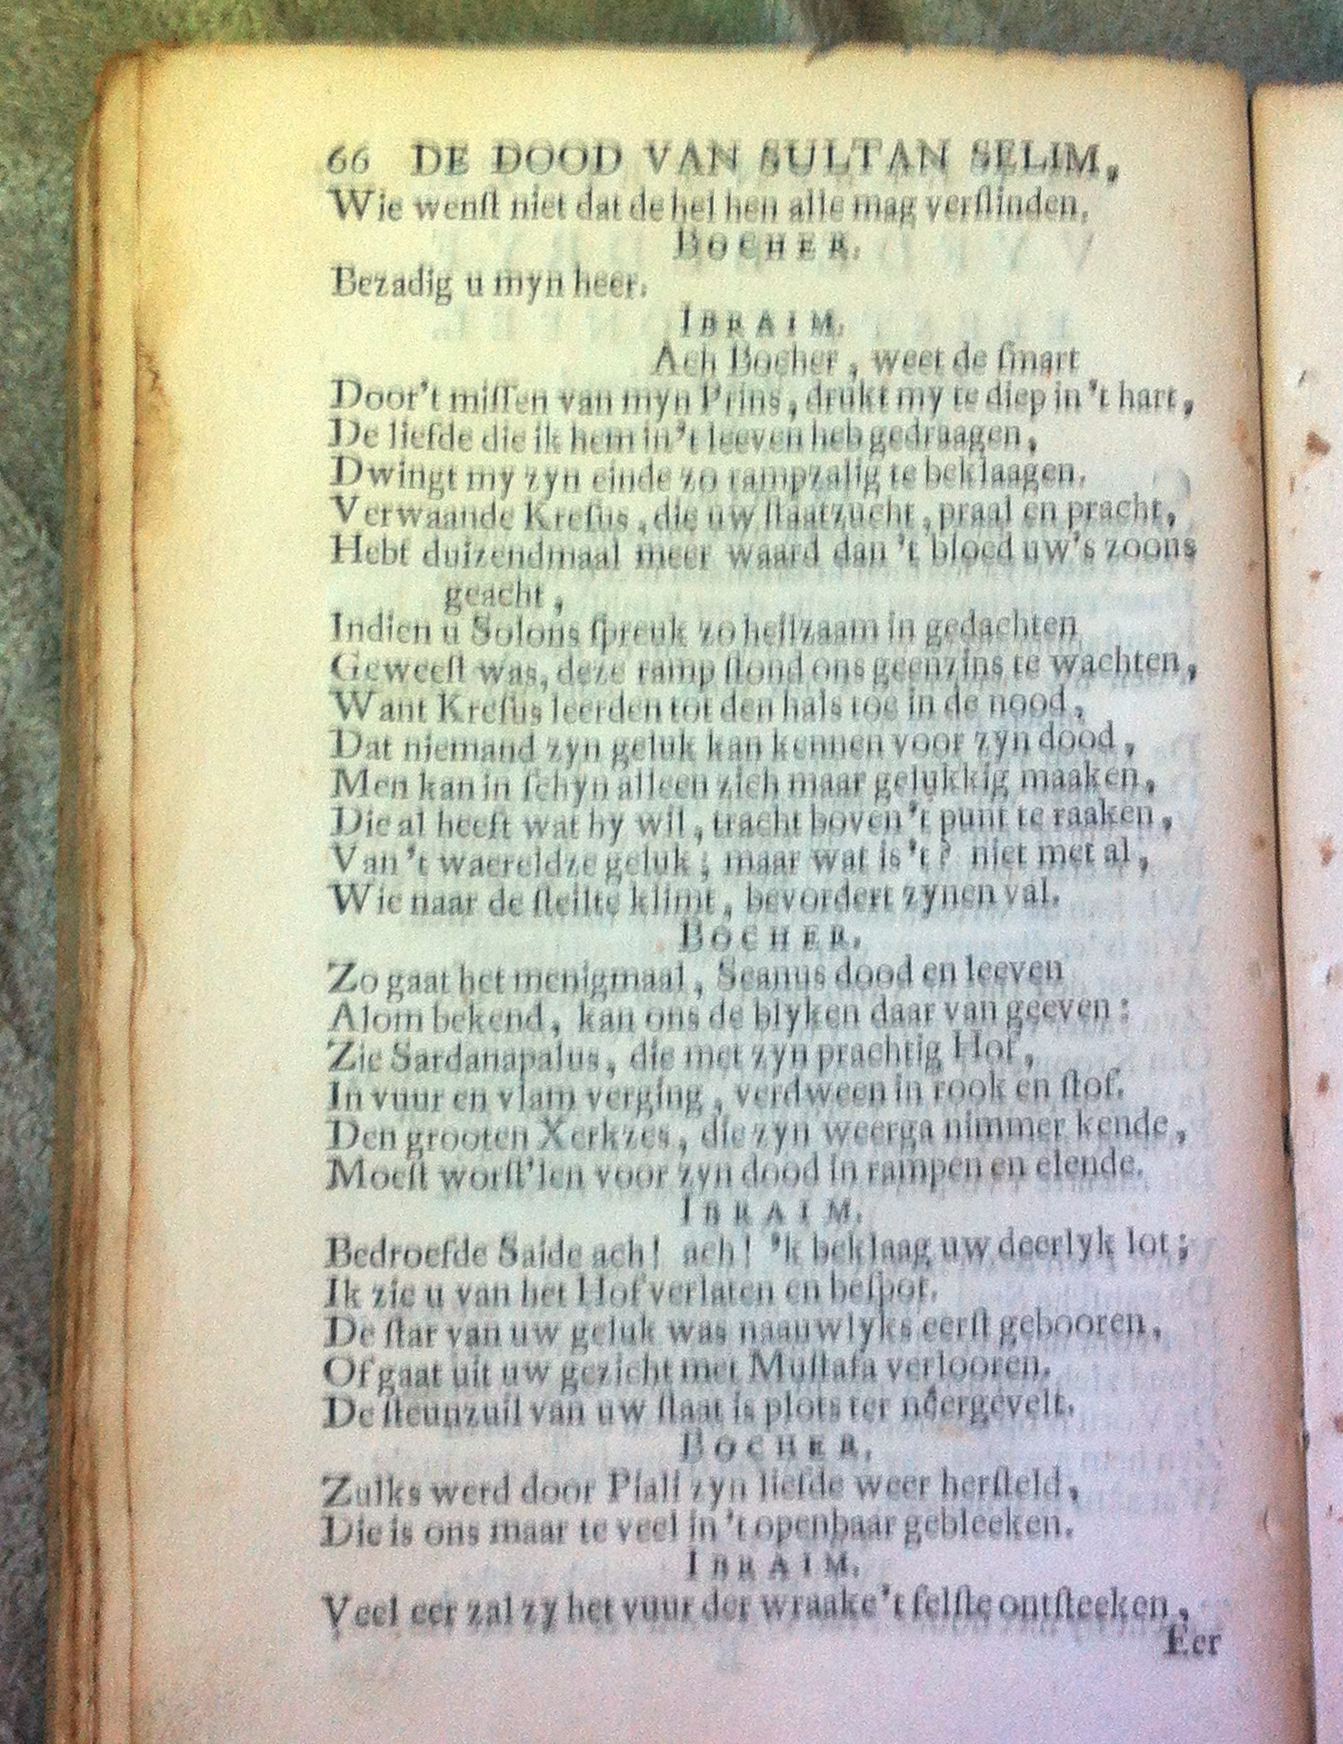 66 DE DOOD VAN SULTAN SELIM,
Wie wenſt niet dat de hel hen alle mag verſlinden.
BOCHER.
Bezadig u myn heer.
IBRAIM.
Ach Bocher, weet de ſmart
Door't miſſen van myn Prins, drukt my te diep in 't hart,
De liefde die ik hem in 't leeven heb gedraagen,
Dwingt my zyn einde zo rampzalig te beklaagen.
Verwaande Kreſus, die uw ſtaatzucht, praal en pracht,
Hebt duizendmaal meer waard dan 't bloed uw's zoons
geacht,
Indien u Solons ſpreuk zo heilzaam in gedachten
Geweeſt was, deze ramp ſtond ons geenzins te wachten,
Want Kreſus leerden tot den hals toe in de nood,
Dat niemand zyn geluk kan kennen voor zyn dood,
Men kan in ſchyn alleen zich maar gelukkig maaken,
Die al heeft wat hy wil, tracht boven 't punt te raaken,
Van 't waereldze geluk; maar wat is 't? niet met al,
Wie naar de ſteilte klimt, bevordert zynen val.
BOCHER.
Zo gaat het menigmaal, Seanus dood en leeven
Alom bekend, kan ons de blyken daar van geeven:
Zie Sardanapalus, die met zyn prachtig Hof,
In vuur en vlam verging, verdween in rook en ſtof.
Den grooten Xerkzes, die zyn weerga nimmer kende,
Moeſt worſt'len voor zyn dood in rampen en elende.
IBRAIM.
Bedroefde Saide ach! ach! 'k beklaag uw deerlyk lot;
Ik zie u van het Hof verlaten en beſpot.
De ſtar van uw geluk was naauwlyks eerſt gebooren,
Of gaat uit uw gezicht met Muſtafa verlooren.
De ſteunzuil van uw ſtaat is plots ter neergevelt.
BOCHER.
Zulks werd door Piali zyn liefde weer herſteld,
Die is ons maar te veel in 't openbaar gebleeken.
IBRAIM.
Veel eer zal zy het vuur der wraake 't felſte ontſteeken,
Eer